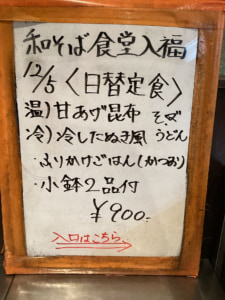 和そば食堂入福
12/5〈日替定食〉
温)甘あげ昆布 そば
冷)冷したぬき風 うどん
・ふりかけごはん(かつお)
・小鉢2品付
¥900-
入口はこちら